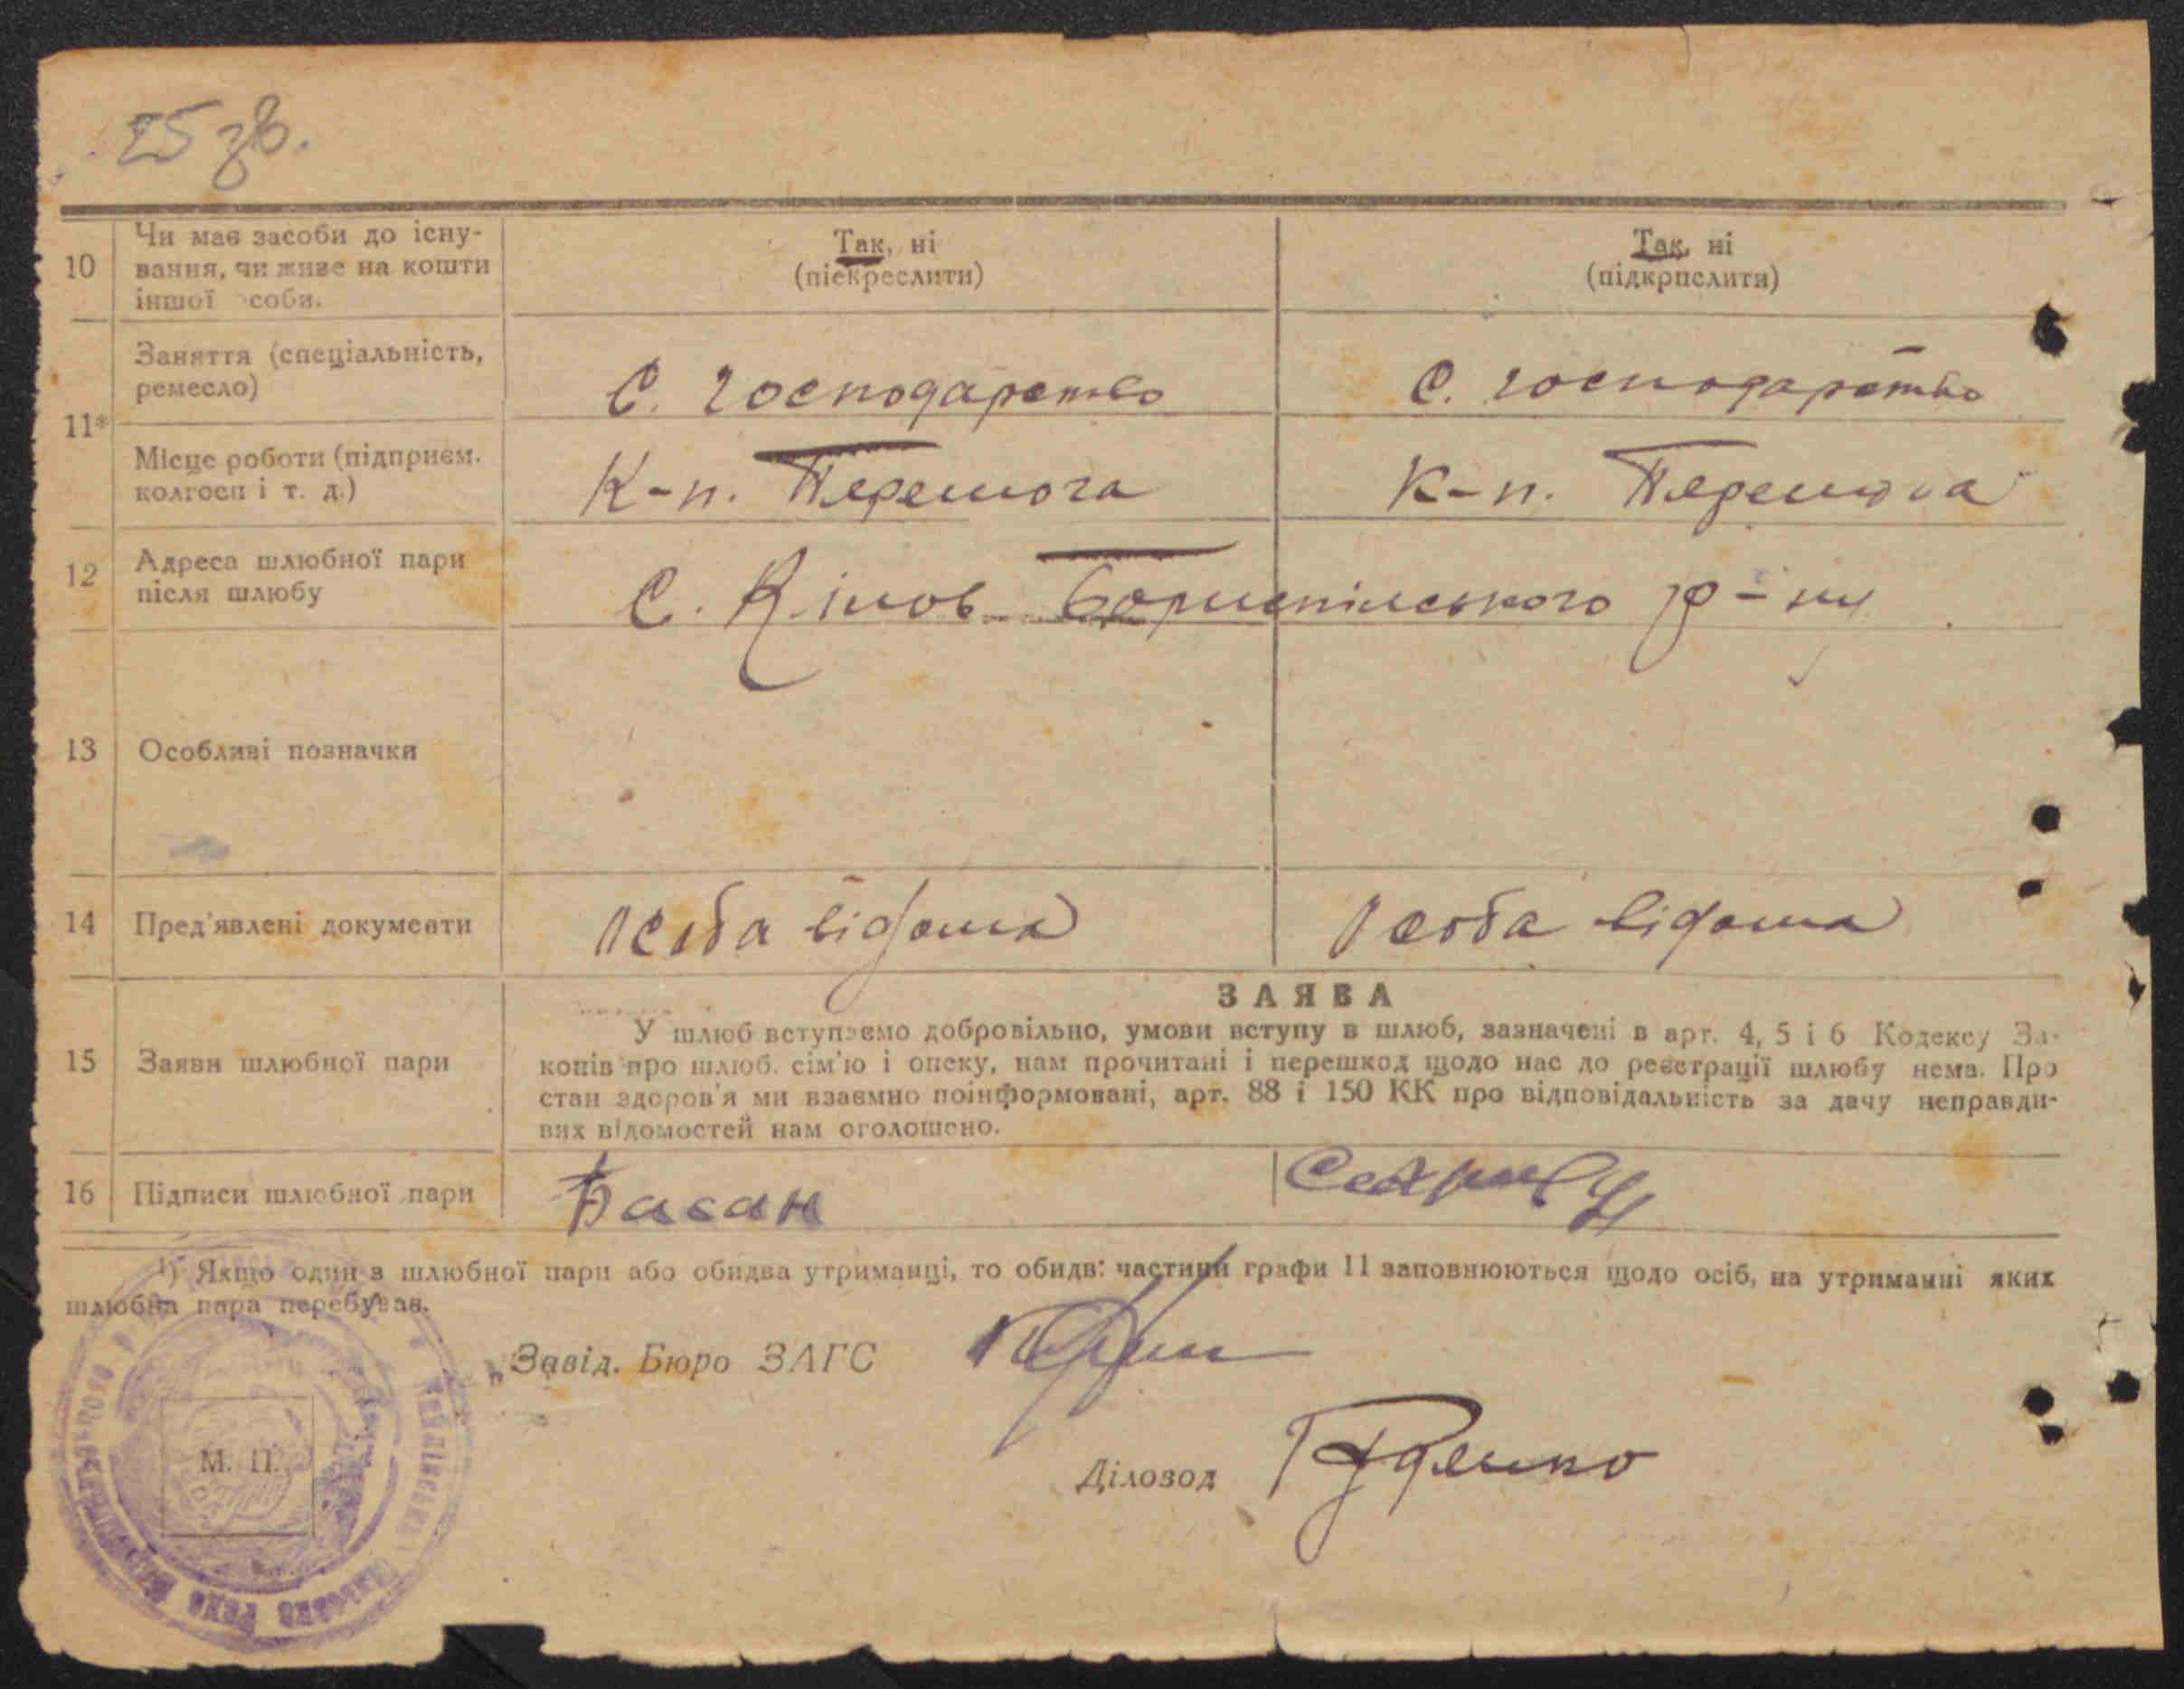 25 зв.
10
Чи має засоби до існу-
вання, чи живе на кошти
іншої особи.
Так, ні
(піекреслити)
Так, ні
(підкрпслити)
11*
Заняття (спеціальність,
ремесло)
С. господарство
С. господарство
Місце роботи (підприєм.
колгосп і т. д.)
К-п. Перемога
К-п. Перемога
12
Адреса шлюбної пари
після шлюбу
С. Бориспільського р-ну
13
Особливі позначки
14
Пред'явлені документи
Особа відома
Особа відома
ЗАЯВА
15
Заяви шлюбної пари
У шлюб вступаємо добровільно, умови вступу в шлюб, зазначені в арт. 4, 5 і 6 Кодексу За-
конів про шлюб. сім'ю і опеку, нам прочитані і перешкод щодо нас до реєстрації шлюбу нема. Про
стан здоров'я ми взаємно поінформовані, арт. 88 і 150 КК про відповідальність за дачу неправди-
вих відомостей нам оголошено.
16
Підписи шлюбної пари
Басан
¹) Якщо один з шлюбної пари або обидва утриманці, то обидві частини графи 11 заповнюються щодо осіб, на утриманні яких
шлюбна пара перебуває.
Завід. Бюро ЗАГС
М. П.
Діловод